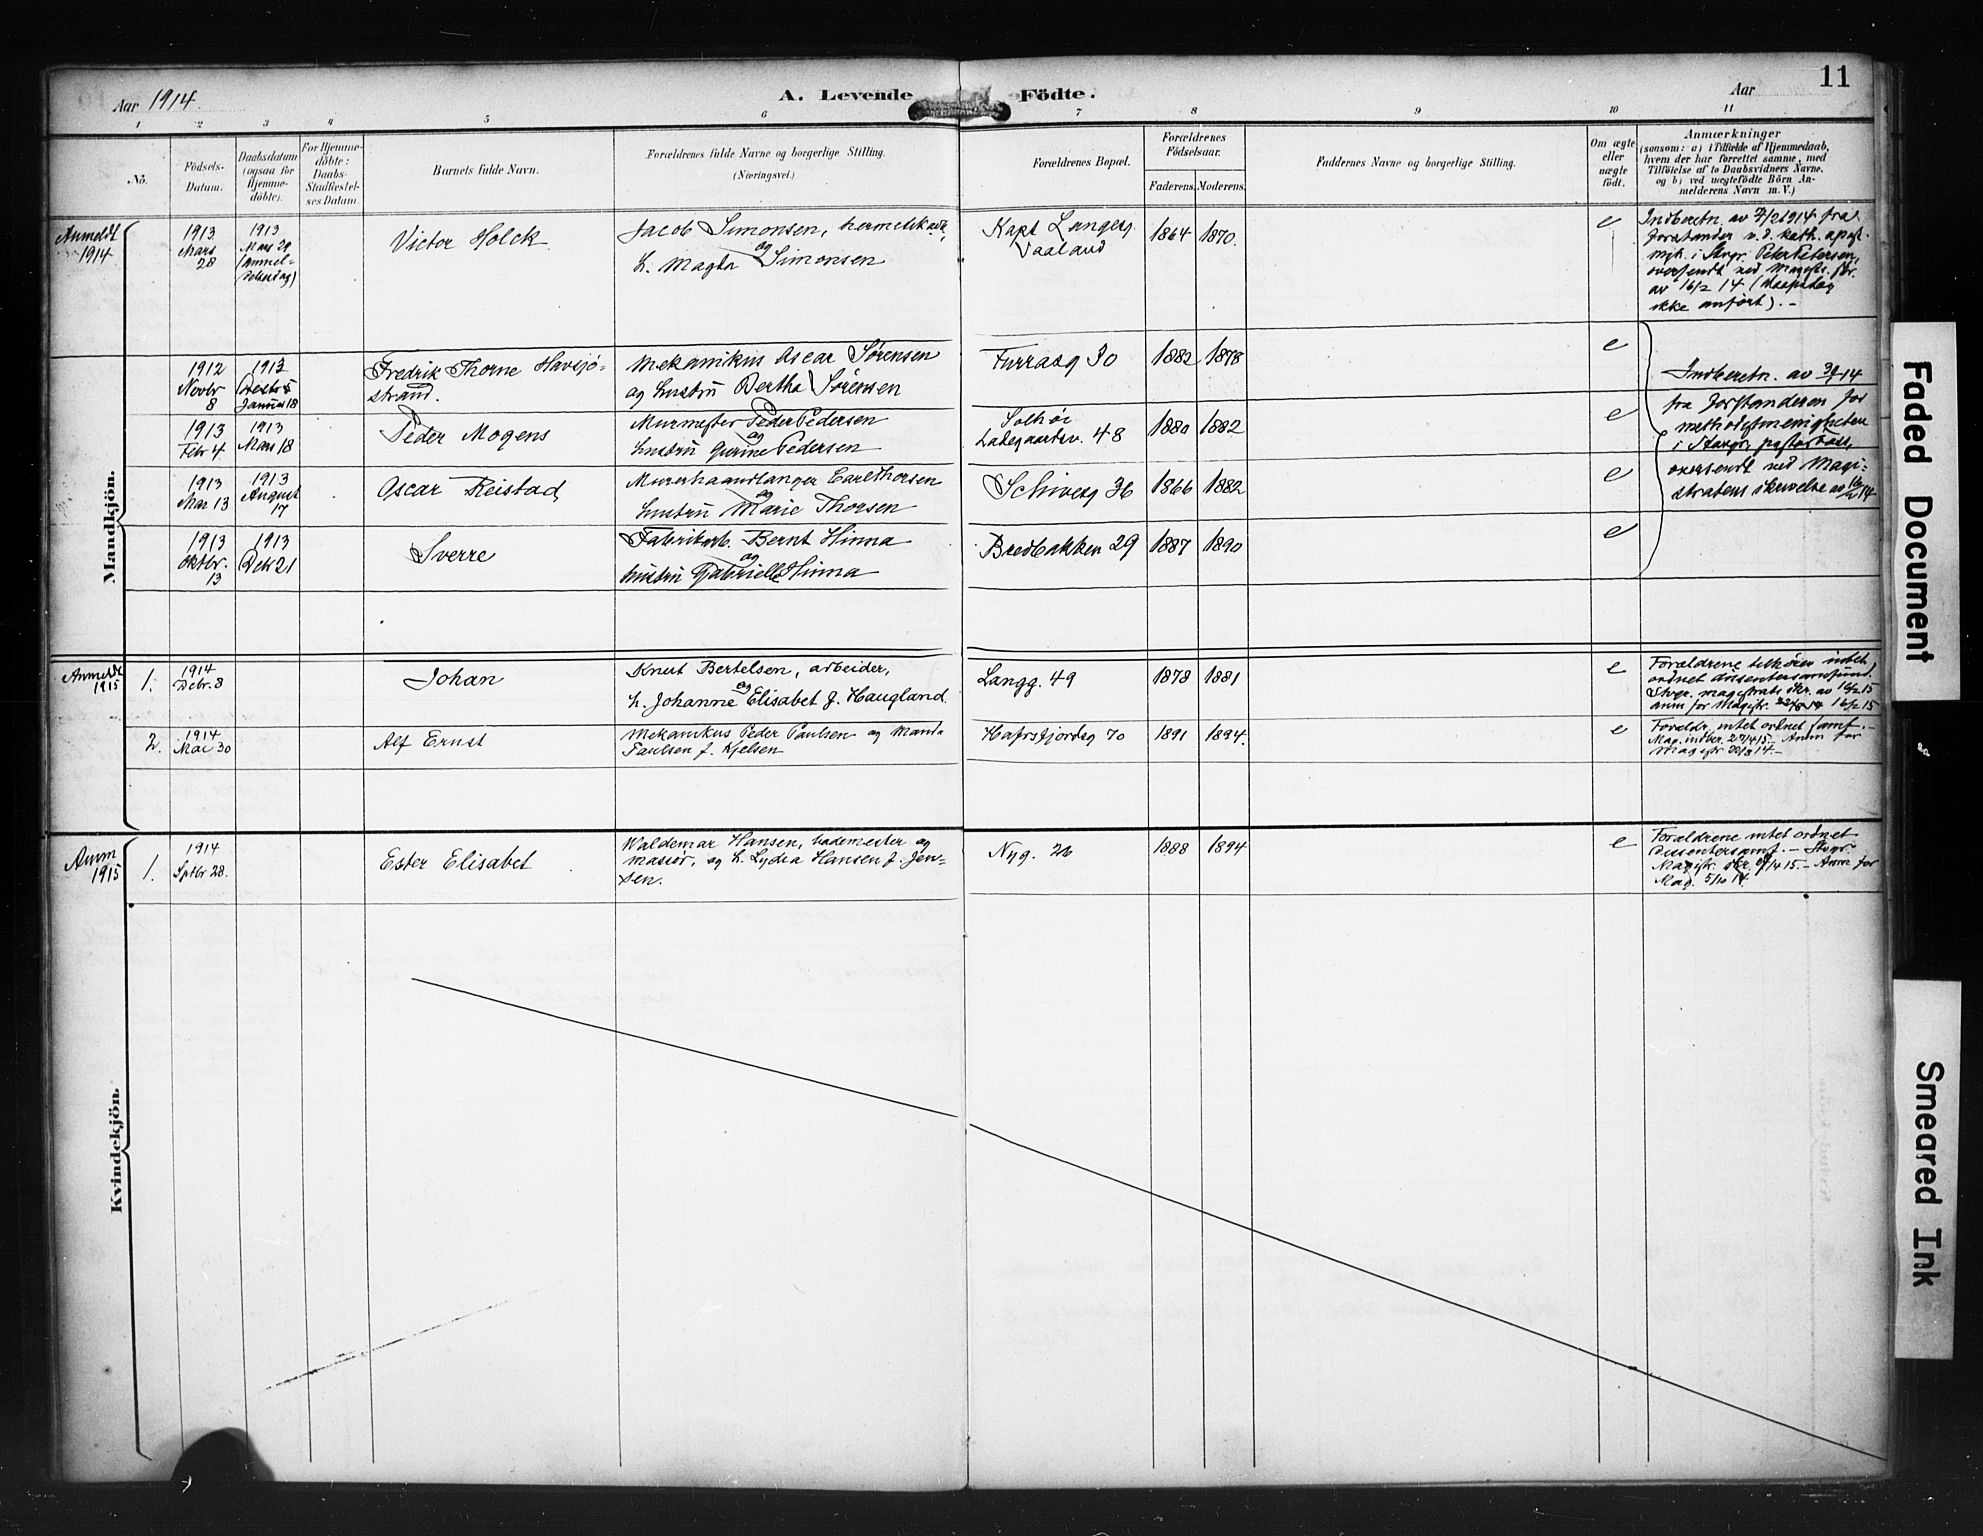 11
Aar 1914. A. Levende Födte. Aar
1 2 3 4 5 6 7 8 9 10 11
No.
Födsels-
Datum.
Daabsdatum
(ogsaa for
Hjemme-
döbte).
For Hjemme-
döbte:
Daabs-
Stadfæstel-
ses Datum.
Barnets fulde Navn.
Forældrenes fulde Navne og borgerlige Stilling.
(Næringsvei.)
Forældrenes Bopæl.
Forældrenes
Födselsaar.
Faderens. Moderens.
Faddernes Navne og borgerlige Stilling.
Om ægte
eller
uægte
födt.
Anmærkninger
(saasom: a) i Tilfælde af Hjemmedaab,
hvem der har forrettet samme, med
Tilföielse af to Daabsvidners Navne,
og b) ved uægtefödte Börn An-
melderens Navn m. V.)
Mandkjön.
Anmeldt
1914
1913
Mars
28
1913
Mars 29
(anmel-
delsesdag)
Victor Holck
Jacob Simonsen,
og
h. Magda Simonsen
Kapt Langesg.
Vaaland
1864 1870.
e
Indberetn. av 7/2 1914 fra
forstander v. d. kath. apost.
mgh. i Stvgr. Peter Petersen,
oversendt ved Magistr. skr.
av 16/2 14 (daapsdag
ikke anført). -
1912
Novbr
8
1913
Januar 18
Fredrik Thorne Havsjö-
strand.
Mekanikus Oscar Sørensen
og hustru Bertha Sørensen
Furrasg 30
1882 1878
e
Indberetn. av 14
fra forstanderen for
methodistmenigheten
i Stavgr., pastor
oversendt ved Magi-
stratens skrivelse av 16/2 14
1913
Febr 4
1913
Mars 18
Peder Mogens
Murmester Peder Pedersen
og
hustru Gurine Pedersen
Solhøi
Ladegaardsv. 48
1880 1882
e
1913
Mar 13
1913
August
17
Oscar Reistad
Murerhaandlanger Carl Thorsen
og
hustru Marie Thorsen
Schivesg 36
1866 1882
e
1913
Oktbr.
13
1913
Debr 21
Sverre
Fabrikarb. Bernt Hinna
og
hustru Gabrielle Hinna
Bredbakken 29
1887 1890
e
Anmeldt
1915
1.
1914
Debr. 8
Johan
Knut Bertelsen, arbeider,
og
h. Johanne Elisabet f. Haugland.
Langg. 49
1878 1881
e
Forældrene tilhører intet
ordnet dissentersamfund.
Stvgr. magistrats skr. av 16/2 15
anm for Magistr. 16/2 15
2.
1914
Mai 30
Alf Ernst
Mekanikus Peder Paulsen og Manda
Paulsen f. Kjelsen
Hafrsfjordsg 70
1891 1894.
e
Foreldr. intet ordnet samf. -
Mag. indber. 27/4 15. - Anm for
Magistr. 14. -
Kvindekjön.
Anm
1915
1.
1914
Sptbr 28.
Ester Elisabet
Waldemar Hansen, bademester og
massør, og h. Lydia Hansen f. Jen-
sen.
Nyg. 26
1888 1894
e
Forældrene intet ordnet
Dissentersamf. - Stvgr.
Magistr. skr. 4 15. - Anm for
Mag. 5/10 14.
Faded Document
Smeared Ink